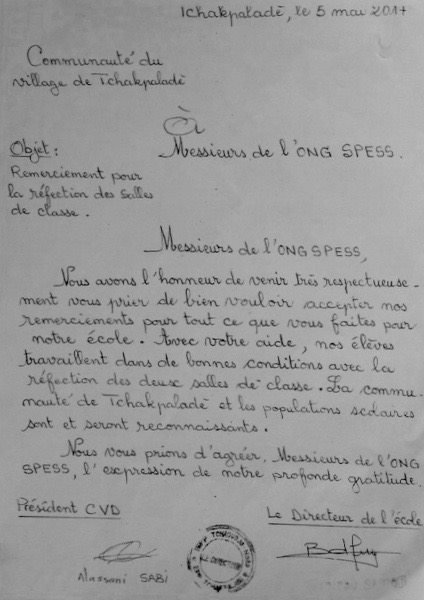 Tchakpaladè, le 5 mai 2017
Communauté du
village de Tchakpaladè
À
Messieurs de l'ONG SPESS.
Objet :
Remerciement pour
la réfection des salles
de classe.
Messieurs de l'ONG SPESS,
Nous avons l'honneur de venir très respectueuse-
ment vous prier de bien vouloir accepter nos
remerciements pour tout ce que vous faites pour
notre école. Avec votre aide, nos élèves
travaillent dans de bonnes conditions avec la
réfection des deux salles de classe. La commu-
nauté de Tchakpaladè et les populations scolaires
sont et seront reconnaissants.
Nous vous prions d'agréer, Messieurs de l'ONG
SPESS, l'expression de notre profonde gratitude.
Président CVD
Le Directeur de l'école
Alassani SABI
LE DIRECTEUR